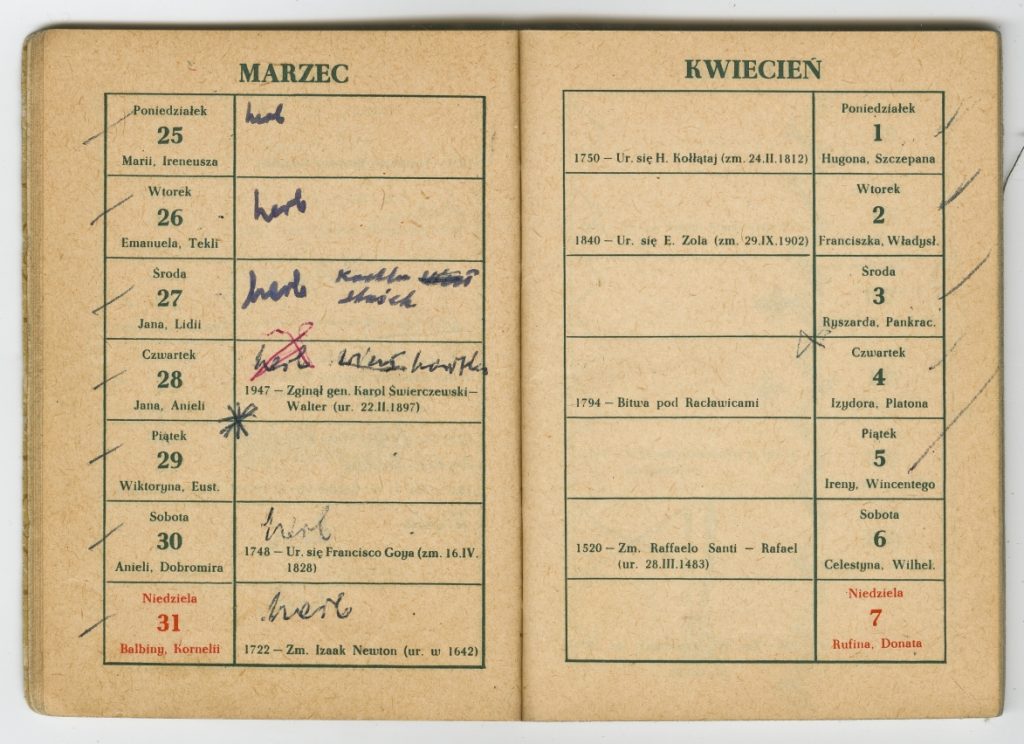 MARZEC
Poniedziałek
25
Marii, Ireneusza
Wtorek
26
Emanuela, Tekli
Środa
27
Jana, Lidii
Czwartek
28
Jana, Anieli
1947 — Zginął gen. Karol Świerczewski—
Walter (ur. 22.II.1897)
Piątek
29
Wiktoryna, Eust.
Sobota
30
Anieli, Dobromira
1748 — Ur. się Francisco Goya (zm. 16.IV.
1828)
Niedziela
31
Balbiny, Kornelii
1722 — Zm. Izaak Newton (ur. w 1642)
KWIECIEŃ
Poniedziałek
1
Hugona, Szczepana
1750 — Ur. się H. Kołłątaj (zm. 24.II.1812)
Wtorek
2
Franciszka, Władysł.
1840 — Ur. się E. Zola (zm. 29.IX.1902)
Środa
3
Ryszarda, Pankrac.
Czwartek
4
Izydora, Platona
1794 — Bitwa pod Racławicami
Piątek
5
Ireny, Wincentego
Sobota
6
Celestyna, Wilhel.
1520 — Zm. Raffaelo Santi — Rafael
(ur. 28.III.1483)
Niedziela
7
Rufina, Donata